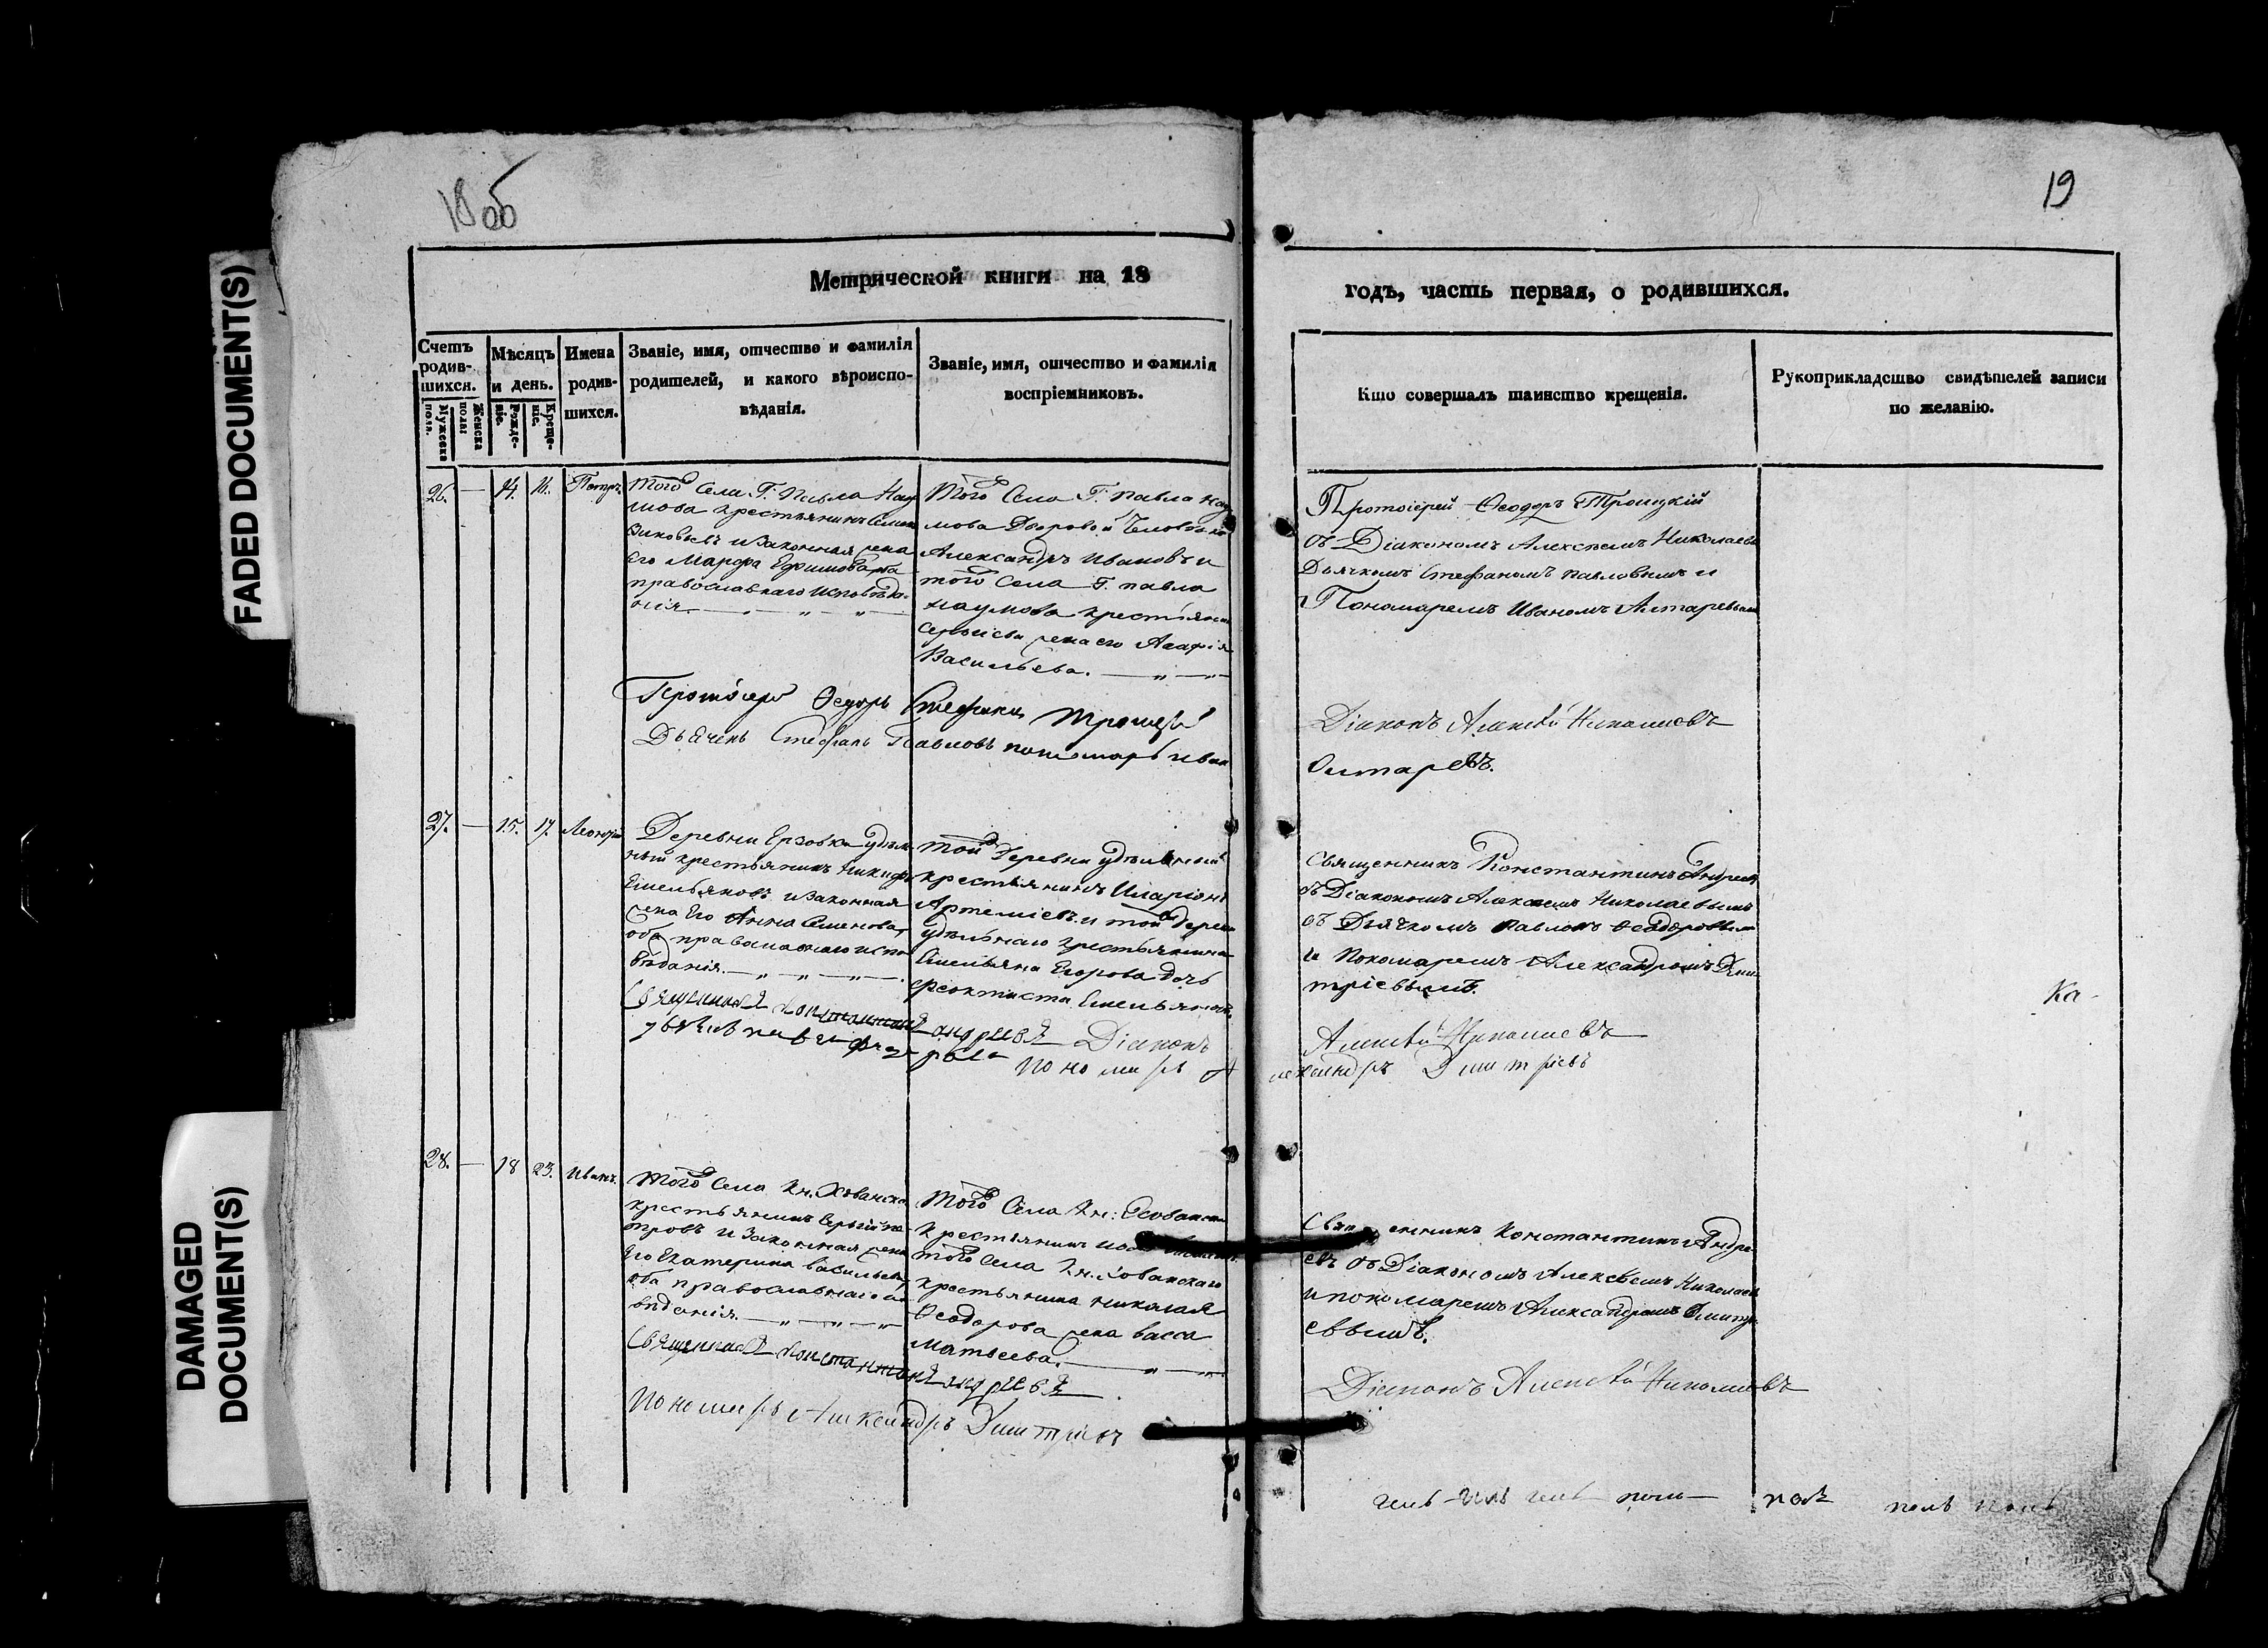 FADED DOCUMENT(S)
DAMAGED
DOCUMENT(S)
18об
19
Метрической книги на 18
годъ, часть первая, о родившихся.
Счетъ
родив-
шихся.
Мужеска
пола.
Женска
пола.
Мѣсяцъ
и день.
Рожде-
ніе.
Креще-
ніе.
Имена
родив-
шихся.
Званіе, имя, отчество и фамилія
родителей, и какого вѣроиспо-
вѣданія.
Званіе, имя, отчество и фамилія
воспріемниковъ.
Кто совершалъ таинство крещенія.
Рукоприкладство свидѣтелей записи
по желанію.
26. — 14. 16. Петръ.
Того Села Г. Павла Нау
мова крестьянинъ
и законная жена
его Марфа Ефимова, оба
православнаго исповѣда-
нія.
Того Села Г. Павла Нау
мова Дворовой Человѣкъ
Александръ Ивановъ и
того Села Г. Павла
Наумова крестьянина
жена его Агафія
Васильева.
Протоіерей Ѳеодоръ Троицкій
съ Діакономъ Алексѣемъ Николаевы
Дьячкомъ Стефаномъ Павловымъ и
Пономаремъ Иваномъ Алтаревымъ
Протоіерей Ѳеодоръ Стефановъ Троицкій
Діаконъ Алексѣй Николаевъ
Дьячекъ Стефанъ Павловъ пономарь Иван
Олтаревъ.
27. — 15. 17. Леонтій
Деревни Ерзовки удѣль
ный крестьянинъ Никифоръ
Емельяновъ и законная
жена Его Анна Семенова,
оба православнаго испо
вѣданія.
Той Деревни удѣльный
крестьянинъ Иларіонъ
Артеміевъ и той Деревни
удѣльнаго крестьянина
Емельяна Егорова Дочь
Феоктиста Емельянова.
Священникъ Константинъ Андреевъ
съ Діакономъ Алексѣемъ Николаевымъ
съ Дьячкомъ Павломъ Ѳеодоровымъ
и Пономаремъ Александромъ Дми
тріевымъ.
Ка-
Священникъ Константинъ Андреевъ Діаконъ
Алексѣй Николаевъ
Пономарь Александръ Дмитріевъ
28. — 18 23. Иванъ.
Того Села Кн. Хованска
крестьянинъ Сергѣй Пе
тровъ и Законная жена
Его Екатерина Васильева,
оба православнаго испо
вѣданія.
Того Села Кн: Хованска
крестьянинъ
того Села Кн. Хованскаго
крестьянина Николая
Ѳеодорова жена Васса
Матвеева.
Священникъ Константинъ Андре
евъ съ Діакономъ Алексѣемъ Николаевы
и пономаремъ Александромъ Дмитрі
евымъ.
Священникъ Константинъ Андреевъ
Діаконъ Алексѣй Николаевъ
Пономарь Александръ Дмитріевъ